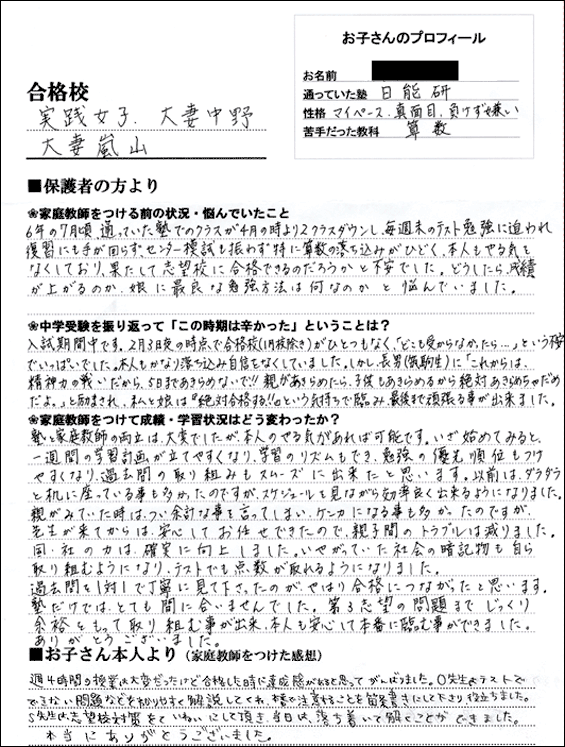 お子さんのプロフィール
お名前
通っていた塾 日能研
性格 マイペース、真面目、負けず嫌い
苦手だった教科 算数
合格校
実践女子、大妻中野
大妻嵐山
■保護者の方より
❀家庭教師をつける前の状況・悩んでいたこと
6年の7月頃、通っていた塾でのクラスが4月の時より2クラスダウンし、毎週末のテスト勉強に追われ
復習にも手が回らず、センター模試も振わず特に算数の落ち込みがひどく、本人もやる気を
なくしており、果たして志望校に合格できるのだろうかと不安でした。どうしたら、成績
が上がるのか、娘に最良な勉強方法は何なのかと悩んでいました。
❀中学受験を振り返って「この時期は辛かった」ということは?
入試期間中です。2月3日夜の時点で合格校(1月校除き)がひとつもなく、「どこも受からなかったら…」という不安
でいっぱいでした。本人もかなり落ち込み自信をなくしていました。しかし、長男(筑駒生)に「これからは、
精神力の戦いだから、5日まであきらめないで!!親があきらめたら、子供もあきらめるから絶対あきらめちゃだめ
だよ。」と励まされ、私と娘は『絶対合格する!!』という気持ちで臨み、最後まで頑張る事が出来ました。
❀家庭教師をつけて成績・学習状況はどう変わったか?
塾と家庭教師の両立は、大変でしたが、本人のやる気があれば可能です。いざ始めてみると、
一週間の学習計画が立てやすくなり、学習のリズムもでき、勉強の優先順位もつけ
やすくなり、過去問の取り組みもスムーズに出来たと思います。以前は、ダラダラ
と机に座っている事も多かったのですが、スケジュールを見ながら効率良く出来るようになりました。
親がみていた時は、つい余計な事を言ってしまい、ケンカになる事も多かったのですが、
先生が来てからは、安心してお任せできたので、親子間のトラブルは減りました。
国・社の力は、確実に向上しました。いやがっていた社会の暗記物も自ら
取り組むようになり、テストでも点数が取れるようになりました。
過去問を1対1で丁寧に見て下さったのが、やはり合格につながったと思います。
塾だけでは、とても間に合いませんでした。第3志望の問題までじっくり
余裕をもって取り組む事が出来、本人も安心して本番に臨む事ができました。
ありがとうございました。
■お子さん本人より(家庭教師をつけた感想)
週4時間の授業は大変だったけど合格した時に達成感があると思ってがんばりました。O先生はテストで
できない問題などを知りやすく解説してくれ、横に注意することを箇条書きにして下さり役立ちました。
S先生は志望校対策をていねいにして頂き、当日は、落ち着いて解くことができました。
本当にありがとうございました。